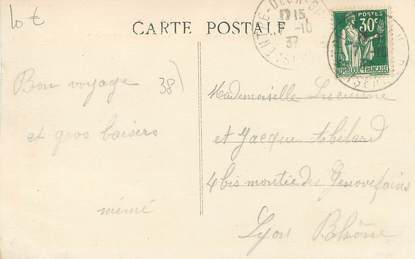 10€
CARTE POSTALE
17 15
-10
37
POSTES
30c
38)
Bon voyage
et gros baisers
mémé
Mademoiselle Lucienne
et Jacques
4 bis montée des Génovéfains
Lyon Rhône